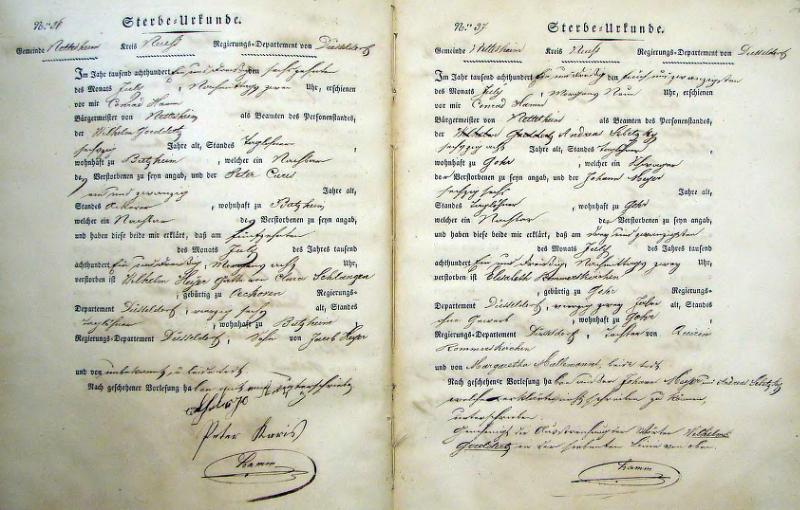 No. 36
Sterbe-Urkunde.
Gemeinde Nettesheim Kreis Neuß Regierungs-Departement von Düsseldorf
Im Jahr tausend achthundert ein und dreißig den sechszehnten
des Monats July, Nachmittags zwey Uhr, erschienen
vor mir Conrad Hamm
Bürgermeister von Nettesheim als Beamten des Personenstandes,
der Wilhelm
sechszig Jahre alt, Standes Taglöhner
wohnhaft zu Butzheim, welcher ein Nachbar
des Verstorbenen zu seyn angab, und der Peter
ein und zwanzig Jahre alt,
Standes Ackerer, wohnhaft zu Butzheim
welcher ein Nachbar des Verstorbenen zu seyn angab,
und haben diese beide mir erklärt, daß am fünfzehnten
des Monats July des Jahres tausend
achthundert ein und dreißig, Morgens acht Uhr,
verstorben ist Wilhelm Heyer Gatte von Clara Schlangen
, gebürtig zu Oeckoven Regierungs-
Departement Düsseldorf, vierzig sechs alt, Standes
Taglöhner, wohnhaft zu Butzheim
Regierungs-Departement Düsseldorf, Sohn von Jacob Heyer
und von unbekannt, beide todt
Nach geschehener Vorlesung haben
Peter Kuris
Hamm
No. 37
Sterbe-Urkunde.
Gemeinde Nettesheim Kreis Neuß Regierungs-Departement von Düsseldorf
Im Jahr tausend achthundert ein und dreißig den fünf und zwanzigsten
des Monats July, Morgens Neun Uhr, erschienen
vor mir Conrad Hamm
Bürgermeister von Nettesheim als Beamten des Personenstandes,
der Wilhelm Andreas
sechszig acht Jahre alt, Standes Taglöhner
wohnhaft zu Gohr, welcher ein Schwager
der Verstorbenen zu seyn angab, und der Johann Meyer
sechszig sechs Jahre alt,
Standes Taglöhner, wohnhaft zu Gohr
welcher ein Nachbar der Verstorbenen zu seyn angab,
und haben diese beide mir erklärt, daß am vier und zwanzigsten
des Monats July des Jahres tausend
achthundert ein und dreißig, Nachmittags zwey Uhr,
verstorben ist Elisabeth Rommerskirchen
, gebürtig zu Gohr Regierungs-
Departement Düsseldorf, vierzig zwey Jahre alt, Standes
ohne Gewerb, wohnhaft zu Gohr
Regierungs-Departement Düsseldorf, Tochter von Quirin
Rommerskirchen
und von Margaretha, beide todt
Nach geschehener Vorlesung haben Johann Meyer und Andreas
welche erklärten nicht schreiben zu können,
unterschrieben.
Genehmigt die Durchstreichung der Wörter Wilhelm
in der siebenten Linie von oben.
Hamm